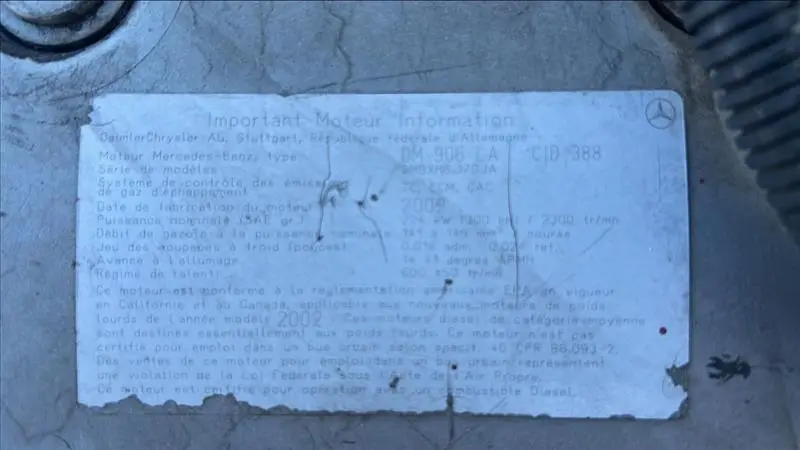 Important Moteur Information
DaimlerChrysler AG, Stuttgart, République fédérale d'Allemagne
Moteur Mercedes-Benz, type OM 906 LA CID 388
Série de modèles
Système de contrôle des émiss
de gaz d'échappement TC, ECM, CAC
Date de fabrication du moteur 2002
Puissance nominale (SAE gr.) kW / 2300 tr/mn
Débit de gazole à la puissance nominale course
Jeu des soupapes à froid (pouces) 0.016 adm. 0.024 ref.
Avance à l'allumage degrés APMH
Régime de ralenti 600 ±50 tr/mn
Ce moteur est conforme à la réglementation américaine EPA en vigueur
en Californie et au Canada, applicable aux nouveaux moteurs de poids
lourds de l'année modèle 2002. Ces moteurs diesel de catégorie moyenne
sont destinés essentiellement aux poids lourds. Ce moteur n'est pas
certifié pour emploi dans un bus urbain selon spécif. 40 CFR 86.093-2.
Des ventes de ce moteur pour emploi dans un bus urbain représentent
une violation de la Loi Fédérale sous l'Acte de l'Air Propre.
Ce moteur est certifié pour opération avec un combustible Diesel.